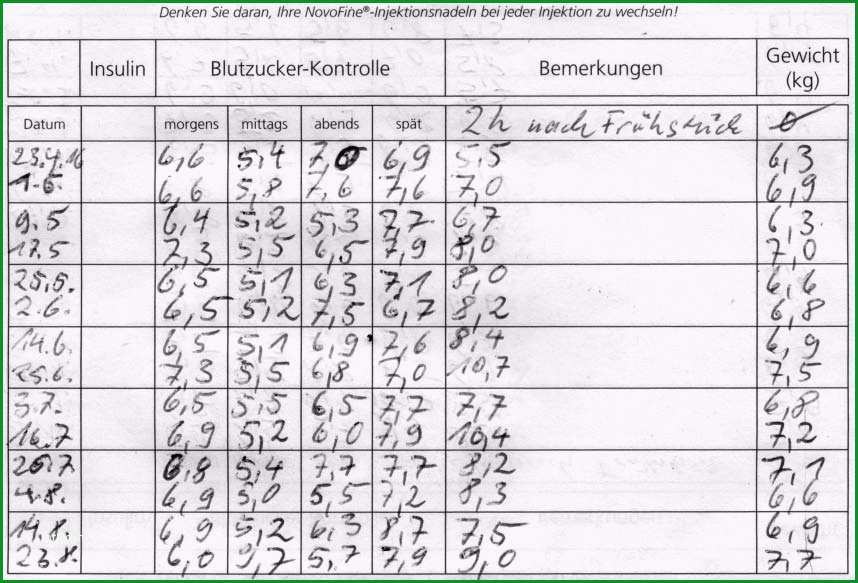 Denken Sie daran, Ihre NovoFine®-Injektionsnadeln bei jeder Injektion zu wechseln!
Insulin Blutzucker-Kontrolle Bemerkungen Gewicht (kg)
Datum morgens mittags abends spät 2h nach Frühstück ø
23.4.16 6,6 5,4 7,0 6,9 5,5 6,3
1.5. 6,6 5,8 7,6 7,6 7,0 6,9
9.5 6,4 5,2 5,3 7,7 6,7 6,3
17.5 7,3 5,5 6,5 7,9 8,0 7,0
25.5. 6,5 5,1 6,3 7,1 8,0 6,6
2.6. 6,5 5,2 7,5 6,7 8,2 6,8
14.6. 6,5 5,1 6,9 7,6 8,4 6,9
25.6. 7,3 5,5 6,8 7,0 10,7 7,5
3.7. 6,5 5,5 6,5 7,7 7,7 6,8
16.7 6,9 5,2 6,0 7,9 10,4 7,2
26.7 6,8 5,4 7,7 7,7 8,2 7,1
4.8. 6,9 5,0 5,5 7,2 8,3 6,6
14.8. 6,9 5,2 6,3 8,7 7,5 6,9
23.8. 6,0 9,7 5,7 7,9 9,0 7,7